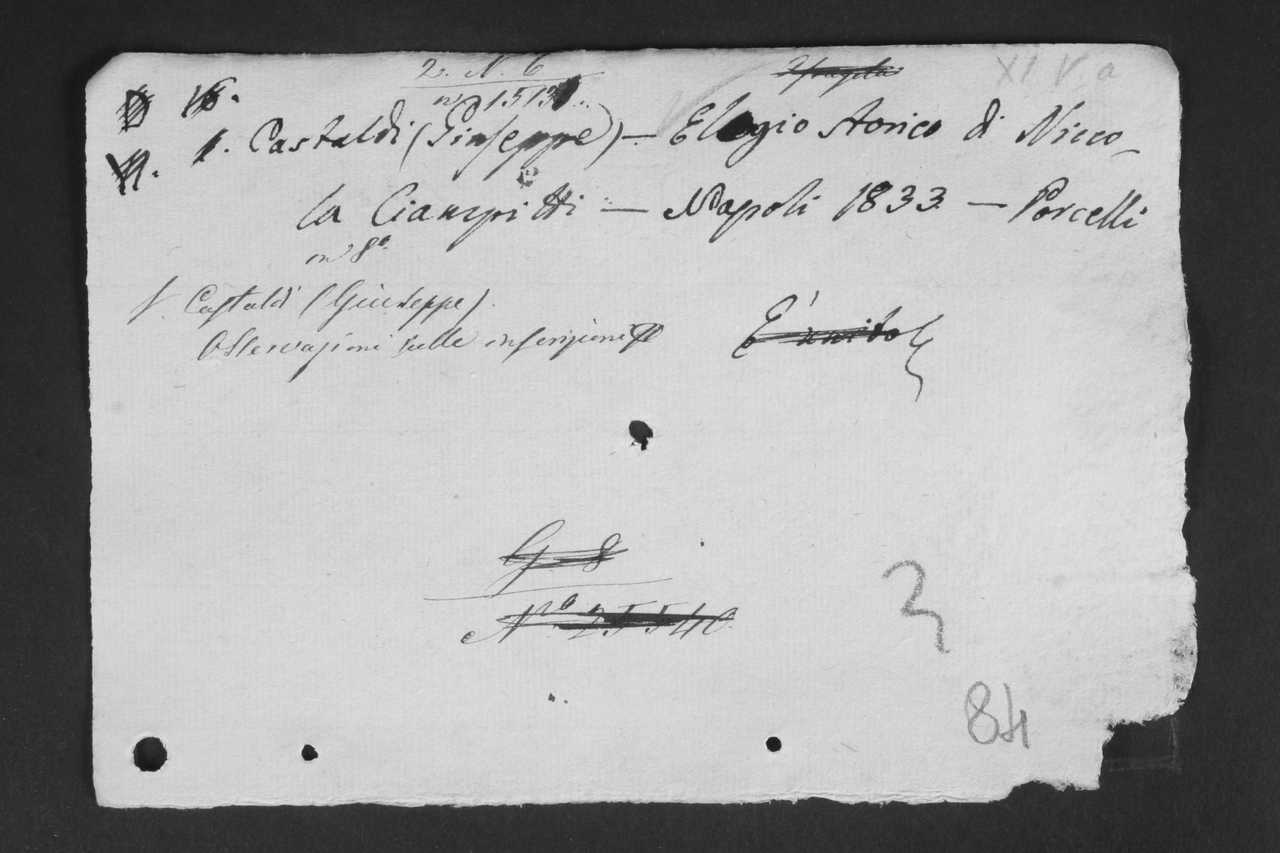 2. N. 6
XI V. a
n° 1513
1. Castaldi (Giuseppe) — Elogio storico di Nicco-
la Ciampitti — Napoli 1833 — Porcelli
in 8°
V. Castaldi (Giuseppe).
Osservazioni sulle inscrizioni
È unito
G 8
N° 25540
3
84